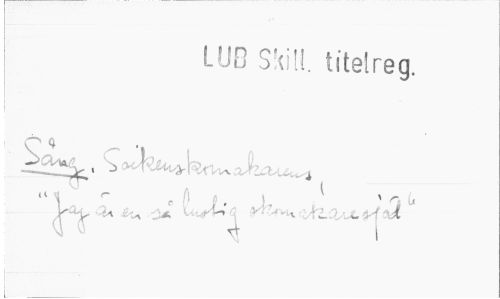 LUB Skill. titelreg.
Sång, Sockenskomakarens,
"Jag är en så lustig skomakaresjäl"